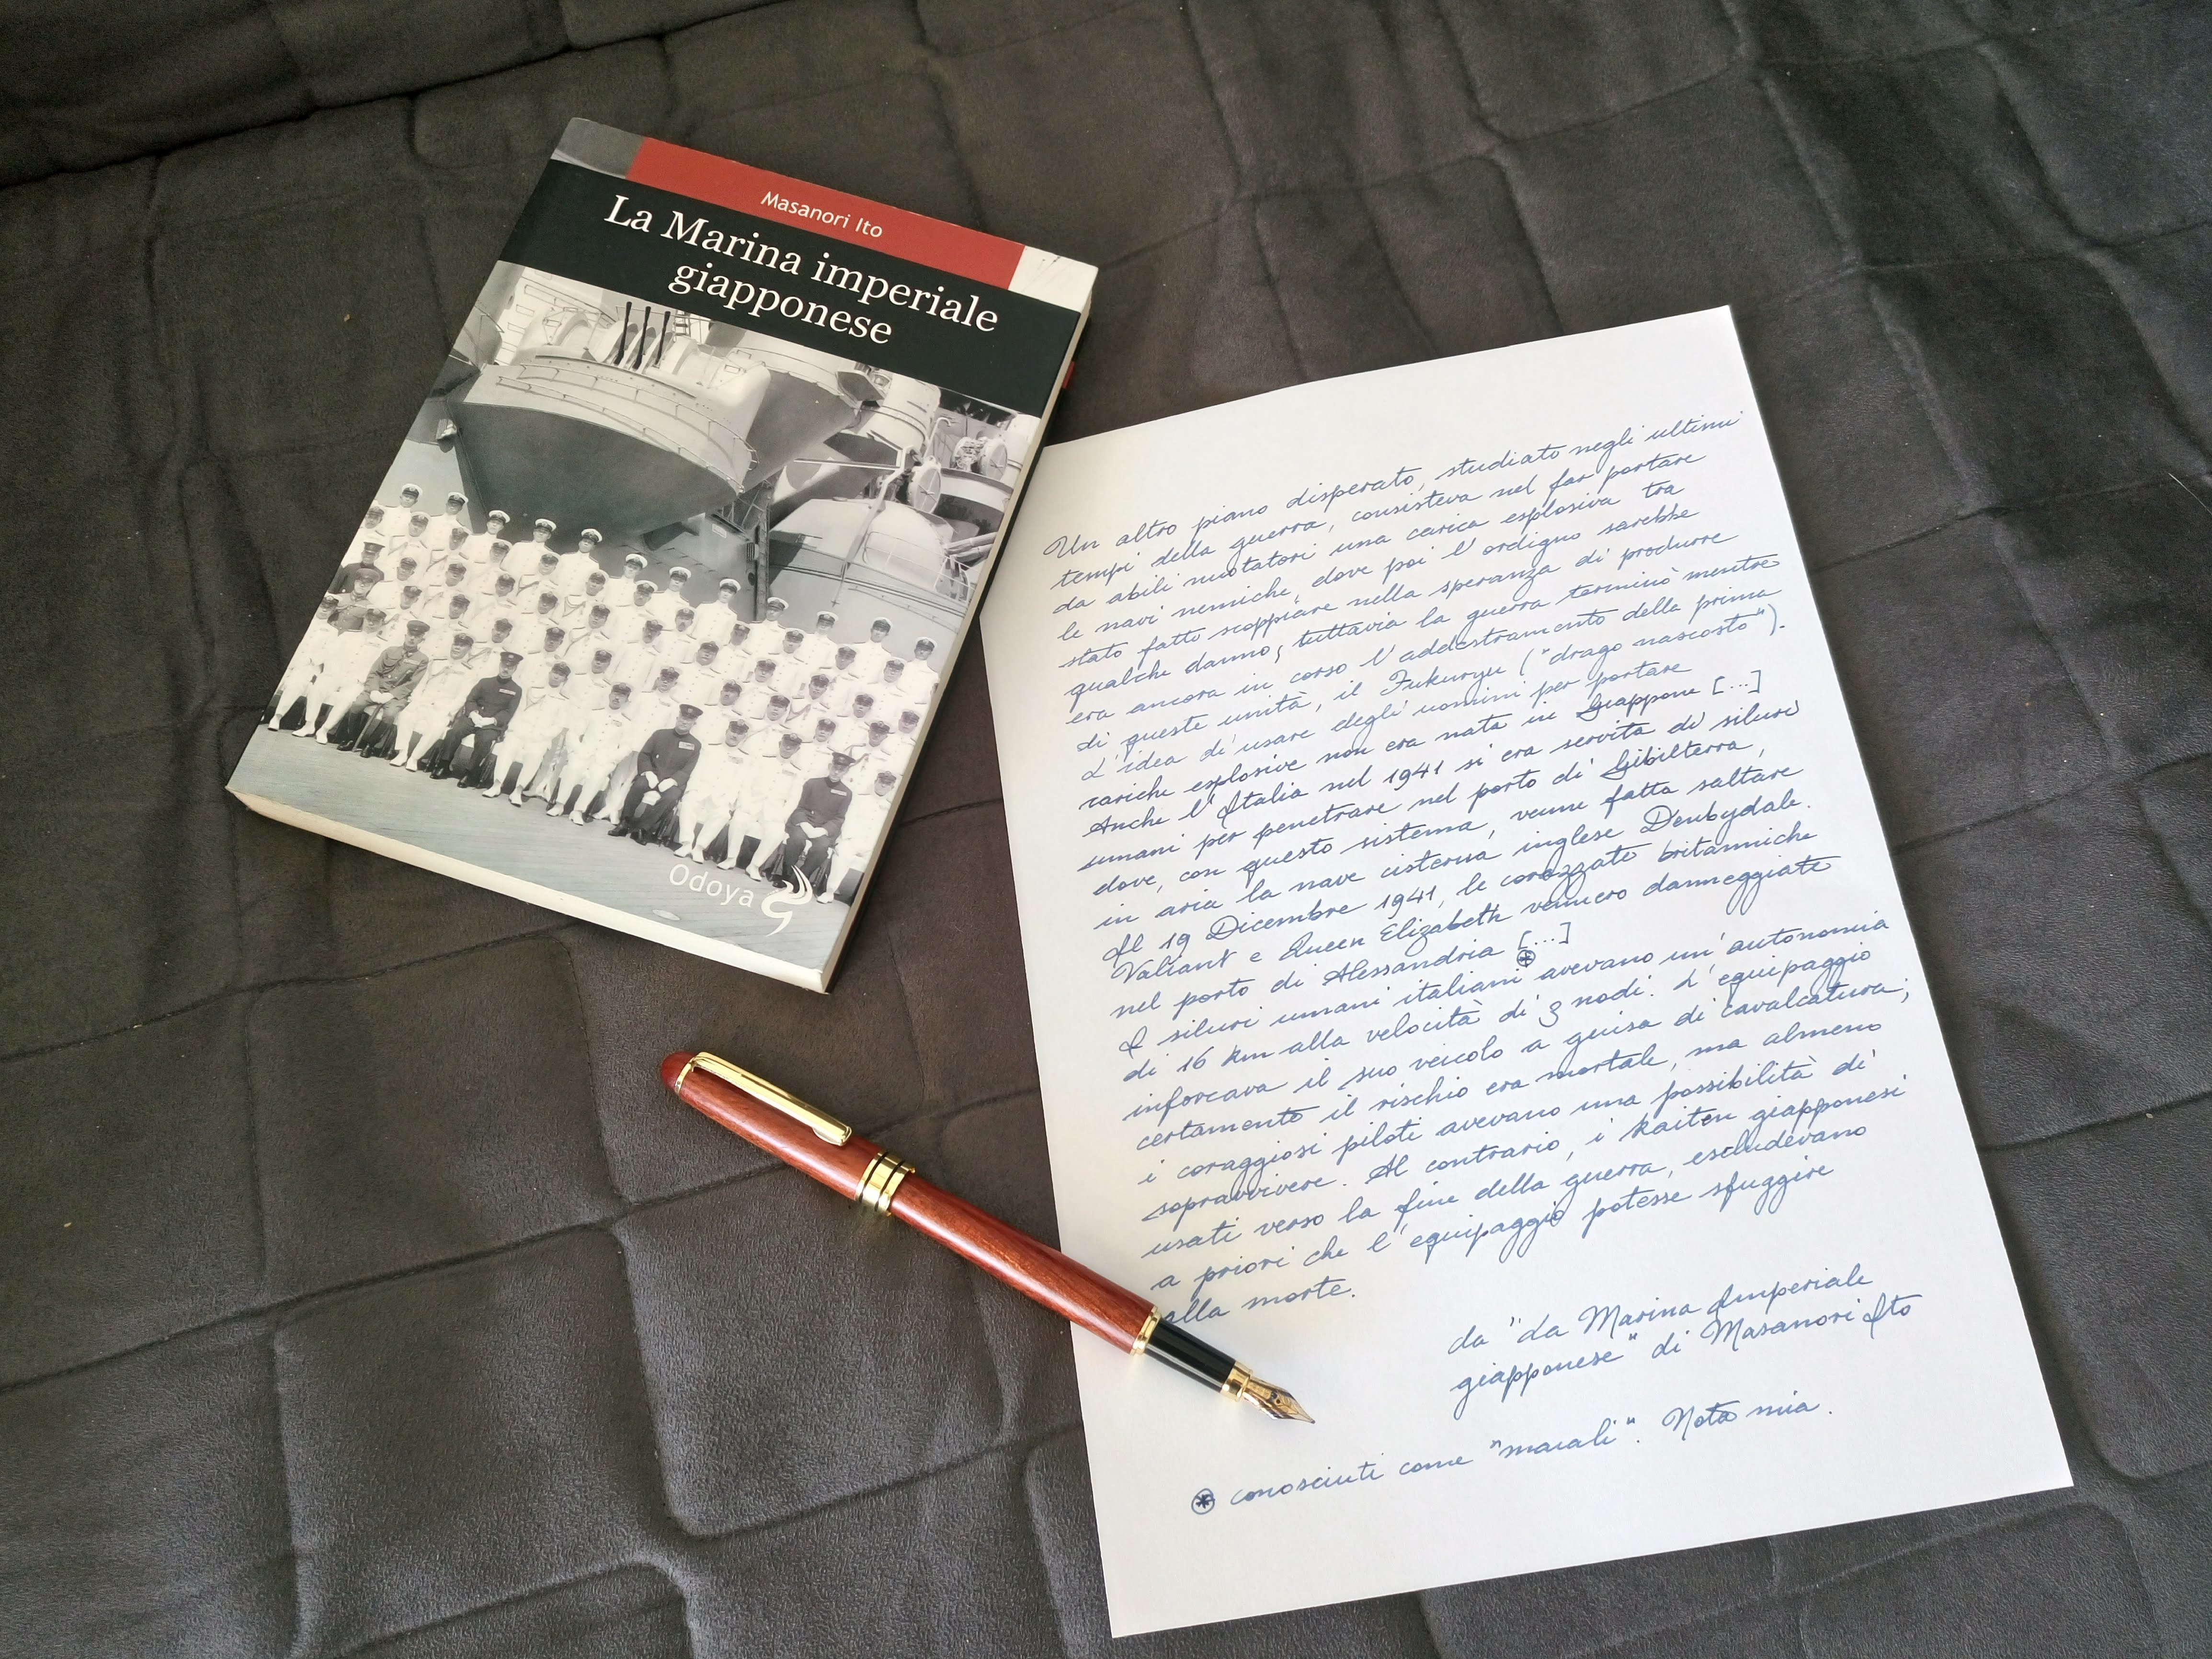 Masanori Ito
La Marina imperiale
giapponese
Odoya
Un altro piano disperato, studiato negli ultimi
tempi della guerra, consisteva nel far portare
da abili nuotatori una carica esplosiva tra
le navi nemiche, dove poi l'ordigno sarebbe
stato fatto scoppiare nella speranza di produrre
qualche danno; tuttavia la guerra terminò mentre
era ancora in corso l'addestramento della prima
di queste unità, il Fukuryu ("drago nascosto").
L'idea di usare degli uomini per portare
cariche esplosive non era nata in Giappone [...]
Anche l'Italia nel 1941 si era servita di siluri
umani per penetrare nel porto di Gibilterra,
dove, con questo sistema, venne fatta saltare
in aria la nave cisterna inglese Denbydale.
Il 19 Dicembre 1941, le corazzate britanniche
Valiant e Queen Elizabeth vennero danneggiate
nel porto di Alessandria [...]
I siluri umani italiani ⊛ avevano un'autonomia
di 16 km alla velocità di 3 nodi. L'equipaggio
inforcava il suo veicolo a guisa di cavalcatura;
certamente il rischio era mortale, ma almeno
i coraggiosi piloti avevano una possibilità di
sopravvivere. Al contrario, i kaiten giapponesi
usati verso la fine della guerra, escludevano
a priori che l'equipaggio potesse sfuggire
alla morte.
da "La Marina Imperiale
giapponese" di Masanori Ito
⊛ conosciuti come "maiali". Nota mia.